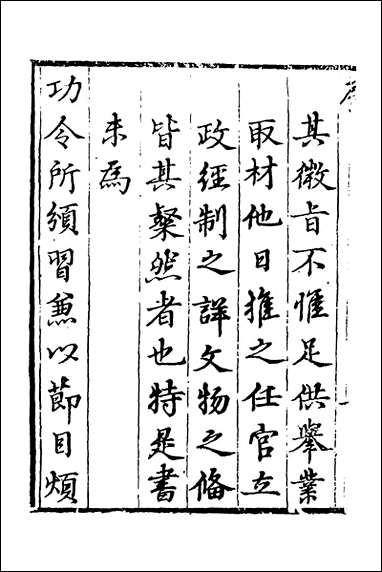 其微旨不惟足供舉業
取材他日推之任官立
政經制之詳文物之偹
皆其粲然者也特是書
未爲
功令所頒習兼以節目煩